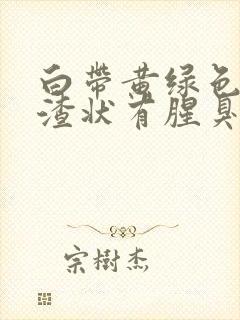 白带黄绿色
渣状有腥臭
宗树杰